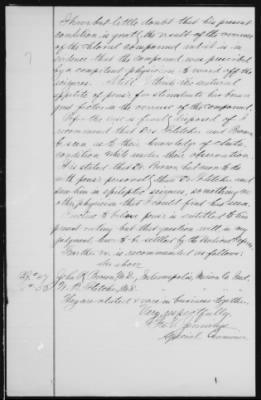 I have but little doubt that his present
condition is greatly the result of the overuse
of the chloral compound as it is in
evidence that the compound was prescribed
by a competent physician to ward off the
seizures. Still I think the natural
appetite of for stimulants has been a
great factor in the overuse of the compound.
Before the case is finally disposed of I
recommend that Drs Fletcher and Brown
be seen as to their knowledge of claimt's
condition while under their observation
It is stated that Dr. Brown
personally that Dr. Fletcher
saw him in epileptic seizures, something no
other physician that I could find has seen.
to believe is entitled to his
present rating but this question will, in my
judgment have to be settled by the
Further ex. is recommended as follows:
John R. Brown, M.D., Indianapolis, Marion Co. Ind.
W. B. Fletcher M.D.
They are alleged to be in business together.
Very respectfully,
Special Examiner